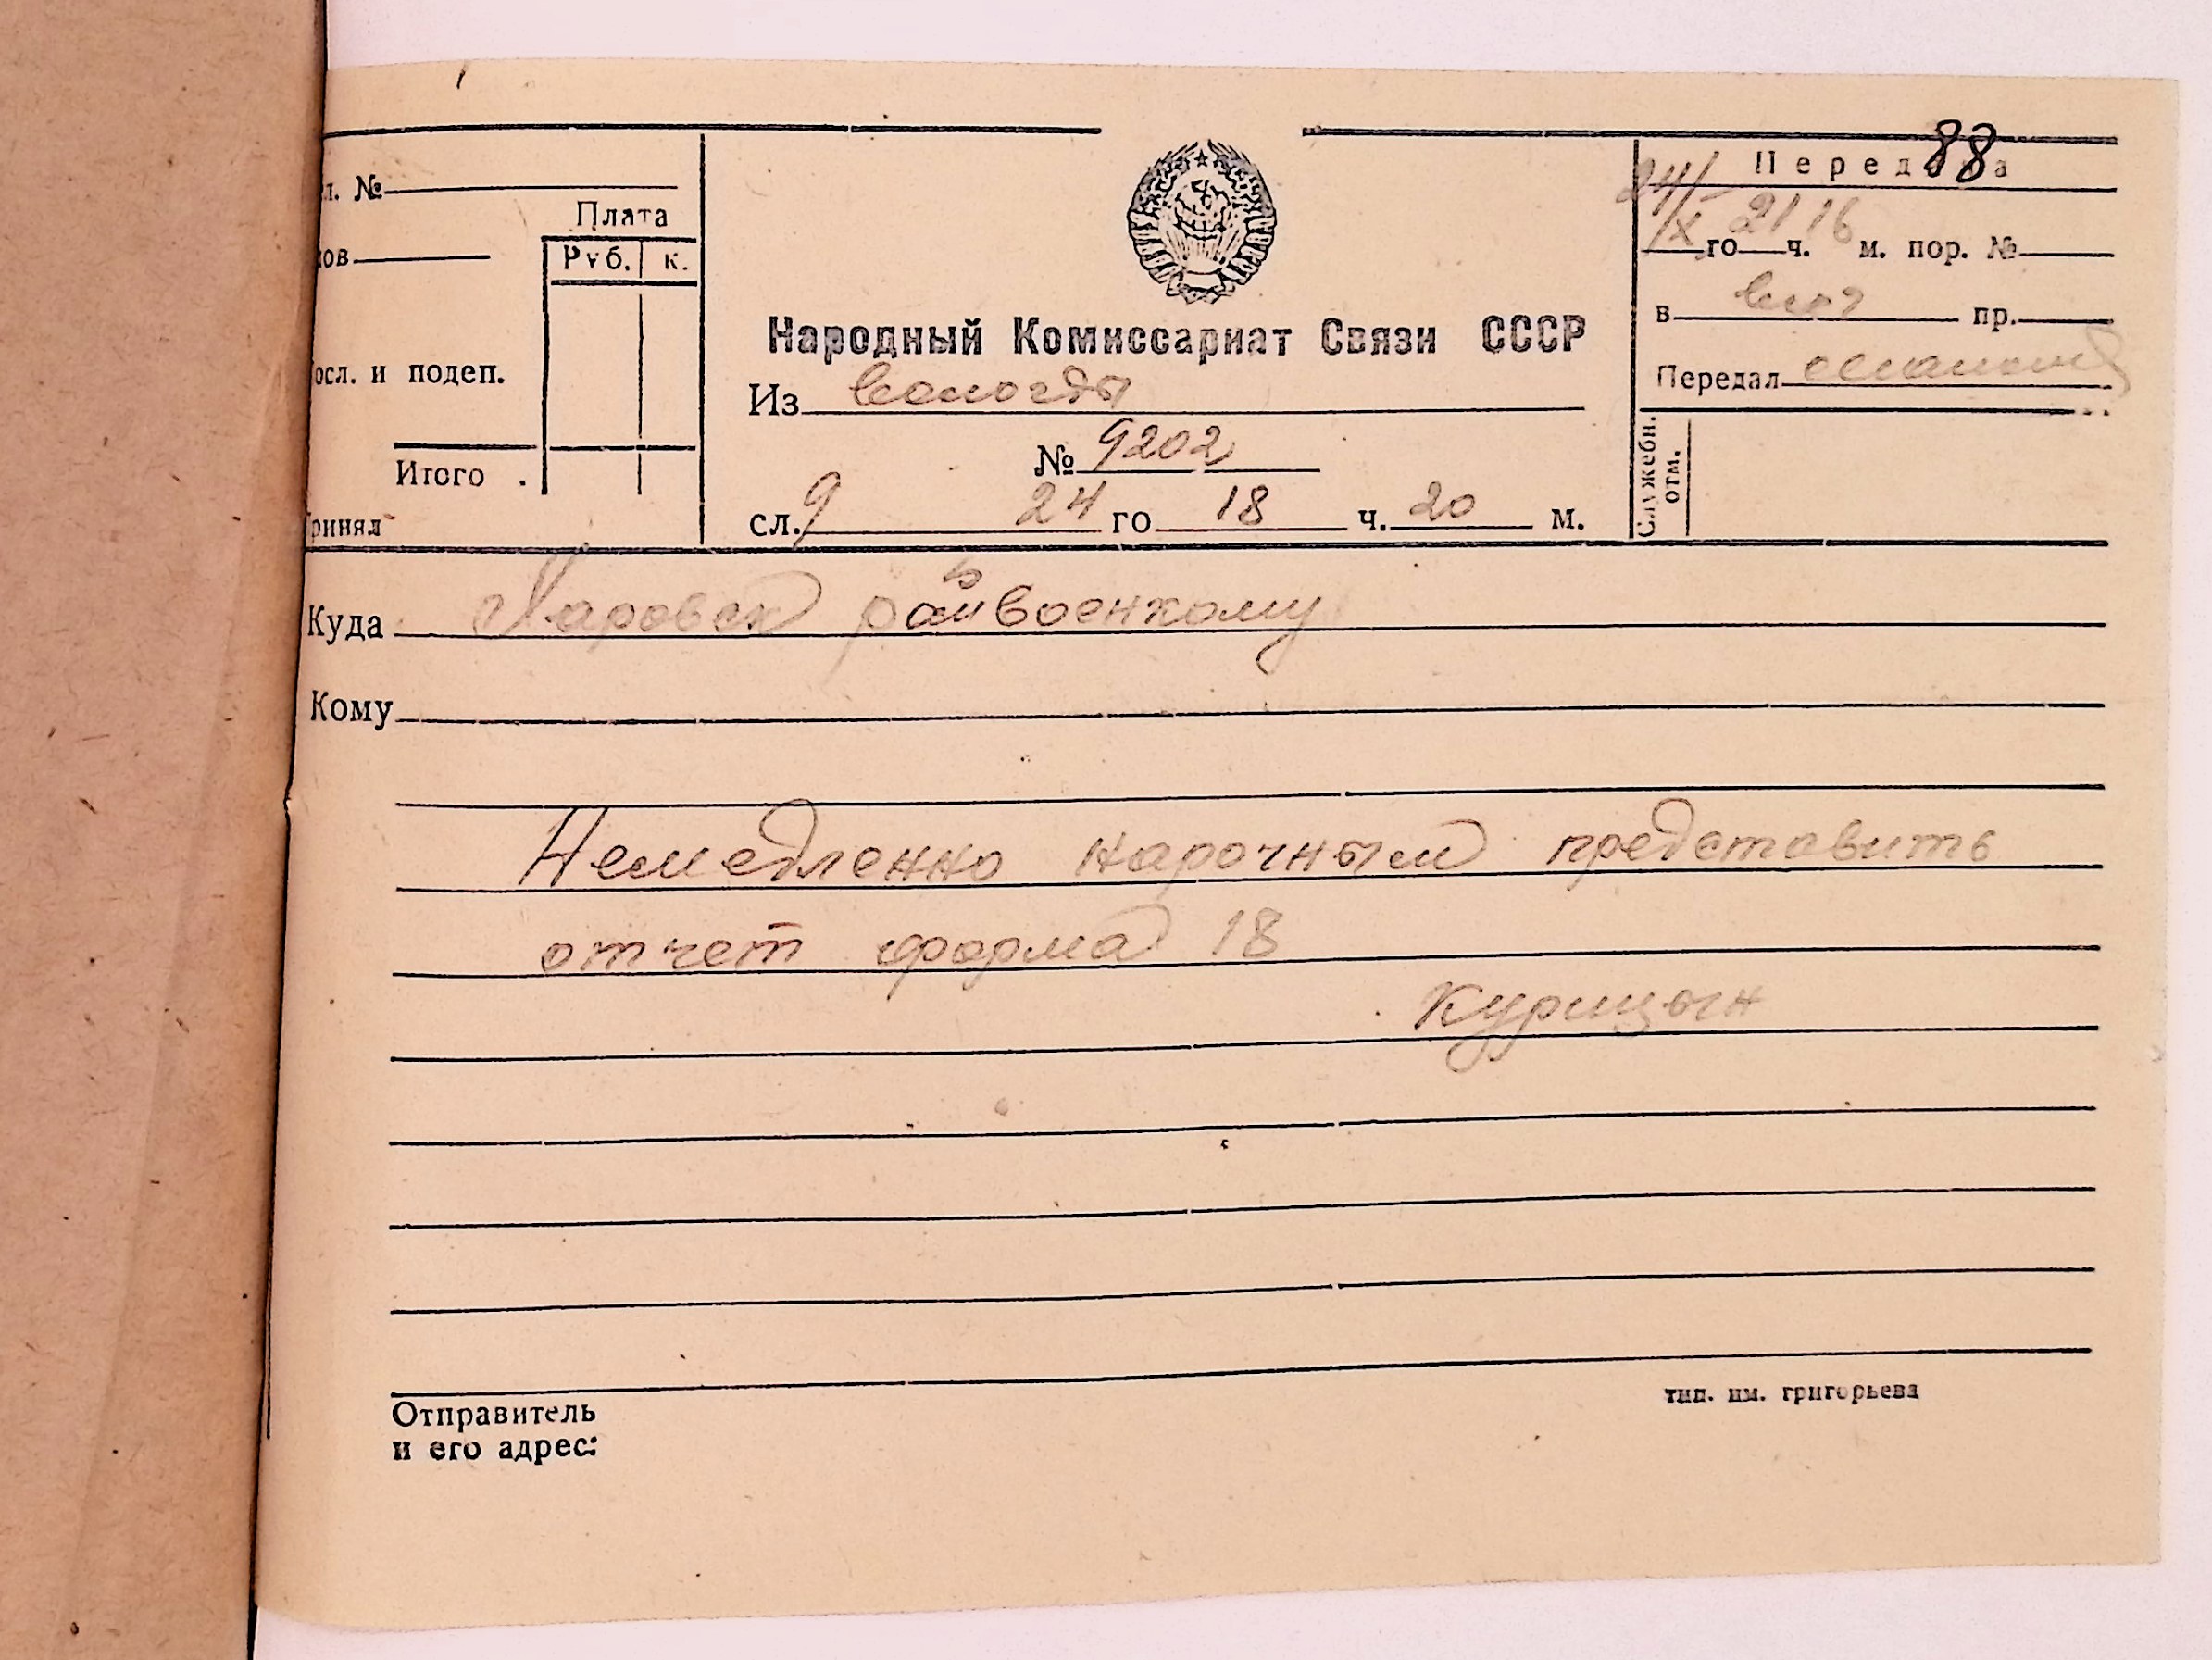 88
л. №
Плата
Руб. к.
ков
осл. и подеп.
Итого .
ринял
Народный Комиссариат Связи СССР
Из Вологды
№ 9202
сл. 9 24 го 18 ч. 20 м.
Передача
24/X го 21 ч. 16 м. пор. №
в пр.
Передал
Служебн.
отм.
Куда Харовск райвоенкому
Кому
Немедленно нарочным представить
отчет форма 18
Курицын
Отправитель
и его адрес:
тип. им. григорьева